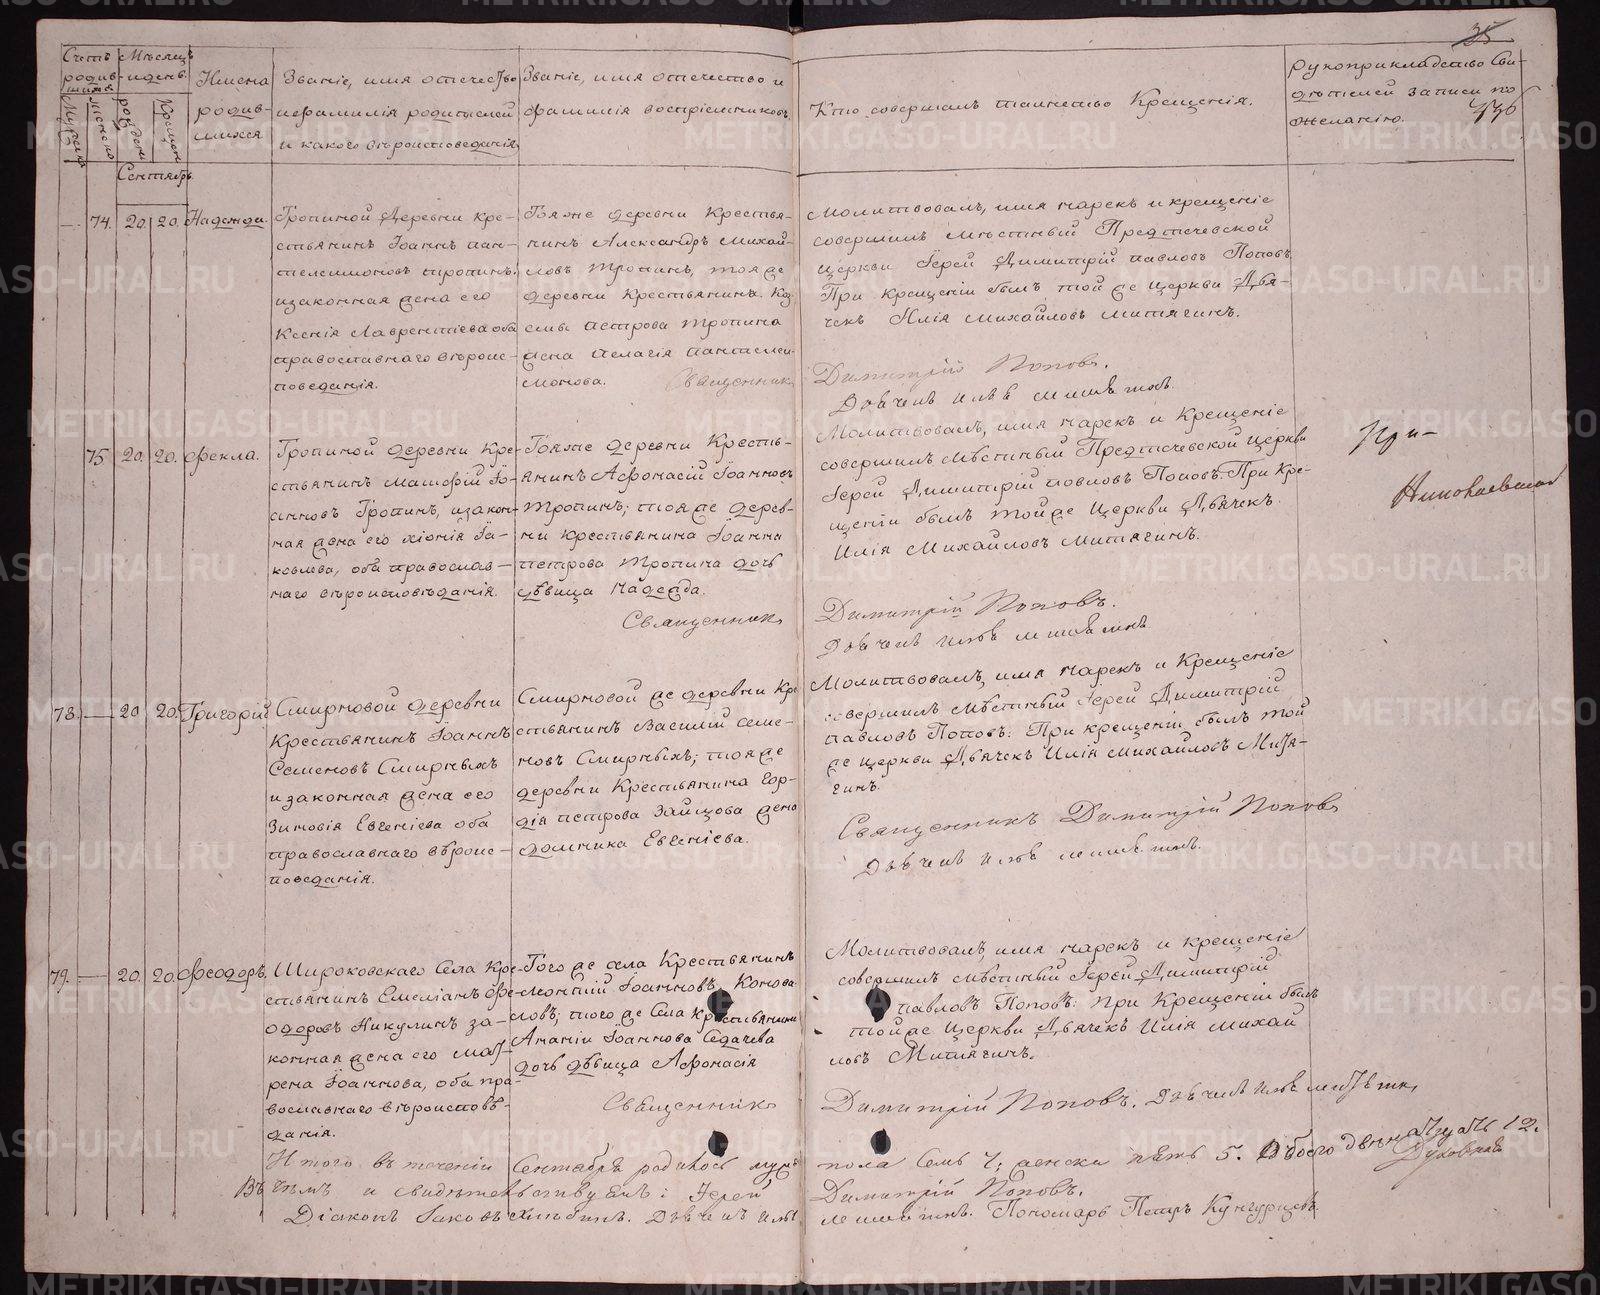 35
776
Счетъ родив-шихся
Мѣсяцъ и день
Имена родив-шихся
Званіе, имя отечество и фамилія родителей и какого вѣроисповеданія
Званіе, имя отечество и фамилія воспріемниковъ
Кто совершалъ таинство Крещенія.
Рукоприкладство Сви-дѣтелей записи по желанію.
Мужеска
Женска
рожденія
Крещен
Сентябрь
— 74. 20. 20. Надежда.
Тропиной Деревни кре-
стьянинъ Іоаннъ пан-
телеимоновъ тропинъ.
изаконная жена его
Ксенія Лаврентіева оба
православнаго вѣроис-
поведанія.
Тояже деревни Крестья-
нинъ Александръ михай-
ловъ Тропинъ, тояже
деревни Крестьянина. Коз-
емы петрова тропина
жена пелагія пантелеи-
монова. Священникъ
Молитвовалъ, имя нарекъ и крещеніе
совершилъ мѣстный Предтечевской
церкви Іерей Димитрій павловъ Поповъ.
При крещеніи былъ той же церкви Дья-
чекъ Илія михайловъ митягинъ.
Димитрій Поповъ.
75 20. 20. Фекла.
Тропиной деревни Кре-
стьянинъ матфій Іо-
анновъ Тропинъ, изакон-
ная жена его хіонія Іа-
ковлева, оба православ-
наго вѣроисповѣданія.
Тояже деревни Кресть-
янинъ Афонасій Іоанновъ
Тропинъ; тояже дерев-
ни крестьянина Іоанна
петрова Тропина дочь
дѣвица Надежда.
Священникъ
Молитвовалъ, имя нарекъ и Крещеніе
совершилъ мѣстный Предтечевской церкви
Іерей Димитрій повловъ Поповъ. При Кре-
щеніи былъ тойже церкви Дьячекъ
Илія Михайловъ митягинъ.
Димитрій Поповъ.
При-
Николаевской
78. — 20 20. Григорій
Смирновой деревни
Крестьянинъ Іоаннъ
Семеновъ Смирныхъ
изаконная жена его
Зиновія Евгеніева оба
православнаго вѣроис-
поведанія.
Смирновой же деревни Кре
стьянинъ Василій семе-
новъ Смирныхъ; тояже
деревни Крестьянина Гор-
дія петрова Зайцова жена
домника Евгеніева.
Молитвовалъ, имя нарекъ и Крещеніе
совершилъ мѣстный Іерей Димитрій
павловъ Поповъ. При крещеніи былъ той
же церкви Дьячекъ Илія михайловъ Митя-
гинъ.
Священникъ Димитрій Поповъ
79. — 20. 20. Феодоръ.
Широковскаго Села Кре-
стьянинъ Емеліанъ Фе-
одоровъ Никулинъ за-
конная жена его мат-
рена Іоаннова, оба пра-
вославнаго вѣроисповѣ-
данія.
Того же села Крестьянинъ
Леонтій Іоанновъ Конова
ловъ; того же Села крестьянина
Ананіи Іоаннова Седачева
дочь дѣвица Афонасія
Священникъ
Молитвовалъ, имя нарекъ и крещеніе
совершилъ мѣстный Іерей Димитрій
павловъ Поповъ. При Крещеніи былъ
тойже церкви Дьячекъ Илія михай
ловъ Митягинъ.
Димитрій Поповъ.
Итого въ теченіи Сентября родилось муж
пола Семь 7; женска пять 5. Обоего двѣнатцать 12.
Въ чемъ и свидѣтельствуемъ: Іерей Димитрій Поповъ. Духовной
Діаконъ Іаковъ Пономарь Петръ Кунгурцевъ
METRIKI.GASO-URAL.RU